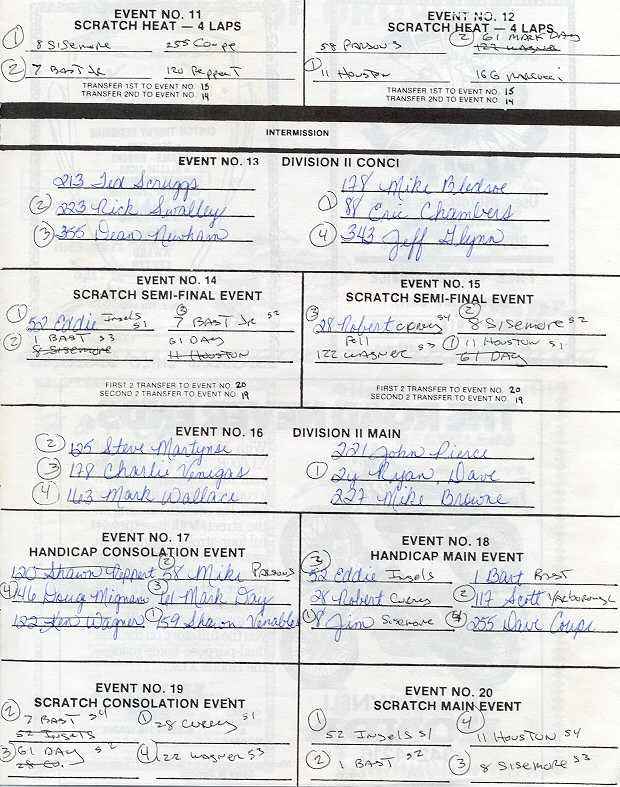 EVENT NO. 11
SCRATCH HEAT — 4 LAPS
① 8 SISEMORE 255 Coupe
② 7 BAST Jr 120 PEPPERT
TRANSFER 1ST TO EVENT NO. 15
TRANSFER 2ND TO EVENT NO. 14
EVENT NO. 12
SCRATCH HEAT — 4 LAPS
58 PARSONS ② 61 MARK DAY
122 WAGNER
① 11 HOUSTON 16G
TRANSFER 1ST TO EVENT NO. 15
TRANSFER 2ND TO EVENT NO. 14
INTERMISSION
EVENT NO. 13 DIVISION II CONCI
213 Ted Scruggs 178 Mike Bledsoe
② 223 Rick Swalley ① 88 Eric Chambers
③ 355 Dean Newham ④ 343 Jeff Glynn
EVENT NO. 14
SCRATCH SEMI-FINAL EVENT
① 52 Eddie Insels S1 ③ 7 BAST Jr S2
② 1 BAST S3 61 DAY
8 SISEMORE 11 HOUSTON
FIRST 2 TRANSFER TO EVENT NO. 20
SECOND 2 TRANSFER TO EVENT NO. 19
EVENT NO. 15
SCRATCH SEMI-FINAL EVENT
③ 28 Robert Currey S4 ② 8 SISEMORE S2
Pell ① 11 HOUSTON S1
122 WAGNER S3 61 DAY
FIRST 2 TRANSFER TO EVENT NO. 20
SECOND 2 TRANSFER TO EVENT NO. 19
EVENT NO. 16 DIVISION II MAIN
② 125 Steve Martynse 221 John Pierce
③ 178 Charlie Venegas ① 2y Ryan, Dave
④ 163 Mark Wallace 227 Mike Browne
EVENT NO. 17
HANDICAP CONSOLATION EVENT
120 Shawn Peppert ② 58 Mike PARSONS
④ 46 Doug Mignam ③ 61 Mark Day
122 Ken Wagner ① 59 Shawn Venables
EVENT NO. 18
HANDICAP MAIN EVENT
③ 52 Eddie Insels 1 Bart BAST
28 Robert Currey ② 117 Scott Yarborough
① 8 Jim Sisemore 255 Dave Coupe
EVENT NO. 19
SCRATCH CONSOLATION EVENT
② 7 BAST S4 ① 28 CURREY S1
52 INSELS
③ 61 DAY S2 ④ 122 WAGNER S3
28 CU.
EVENT NO. 20
SCRATCH MAIN EVENT
① 52 INSELS S1 ④ 11 HOUSTON S4
② 1 BAST S2 ③ 8 SISEMORE S3